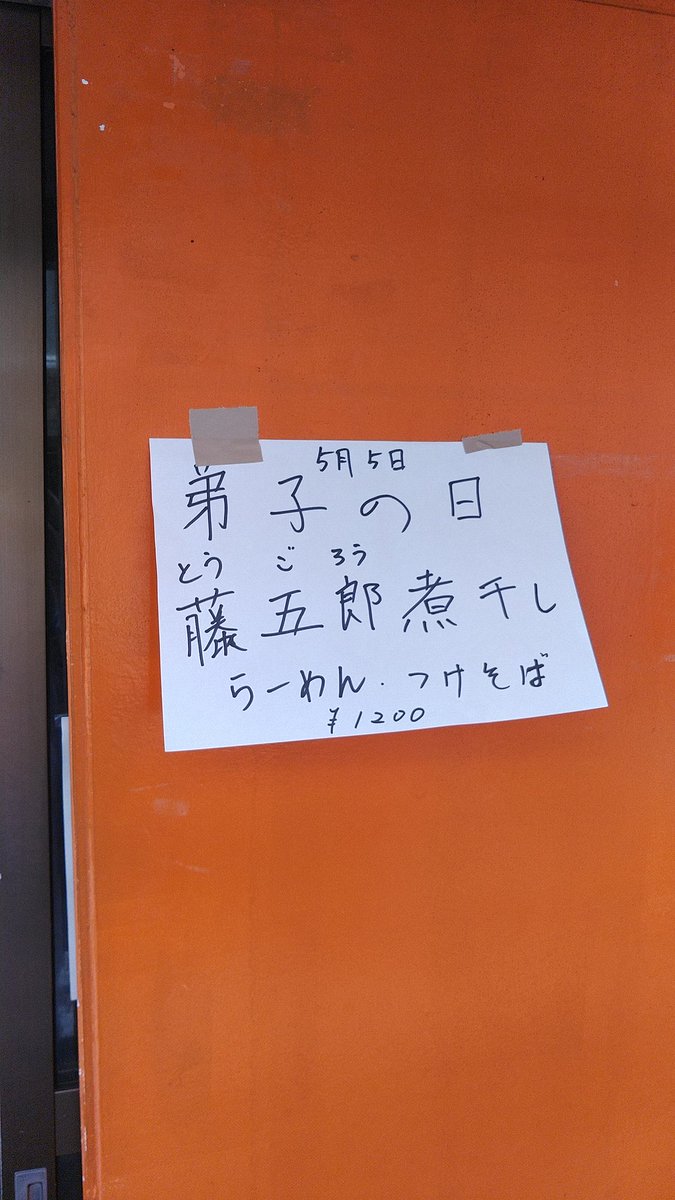 5月5日
弟子の日
とうごろう
藤五郎煮干し
らーめん.つけそば
¥1200